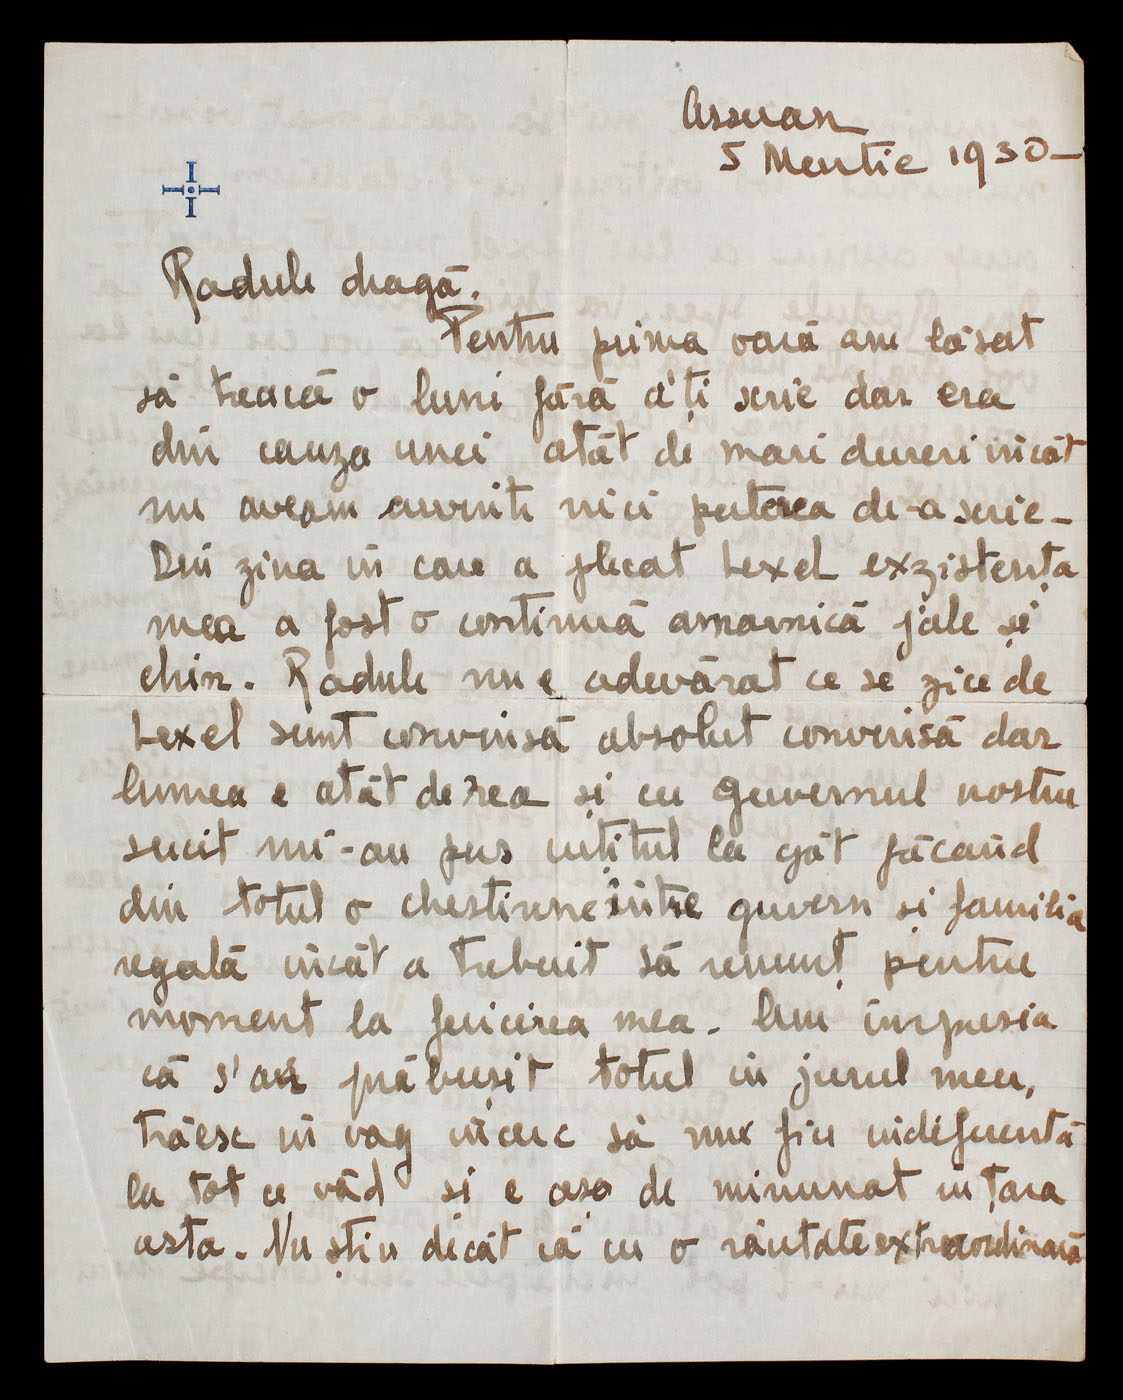 Assuan
5 Martie 1930—
Radule dragă,
Pentru prima oară am lăsat
să treacă o lună fără a'ți scrie dar era
din cauza unei atât de mari dureri încât
nu aveam cuvinte nici puterea de-a scrie—
Din ziua în care a plecat Lexel exzistența
mea a fost o continuă amarnică jale și
chin. Radule nu e adevărat ce se zice de
Lexel sunt convinsă absolut convinsă dar
lumea e atât de rea și cu guvernul nostru
sucit mi-au pus cuțitul la gât făcând
din totul o chestiune între guvern și familia
regală încât a trebuit să renunț pentru
moment la fericirea mea. Am impresia
că s'au prăbușit totul în jurul meu,
trăesc în vag încerc să nu fiu indiferentă
la tot ce văd și e așa de minunat în țara
asta. Nu știu decât că cu o răutate extraordinară